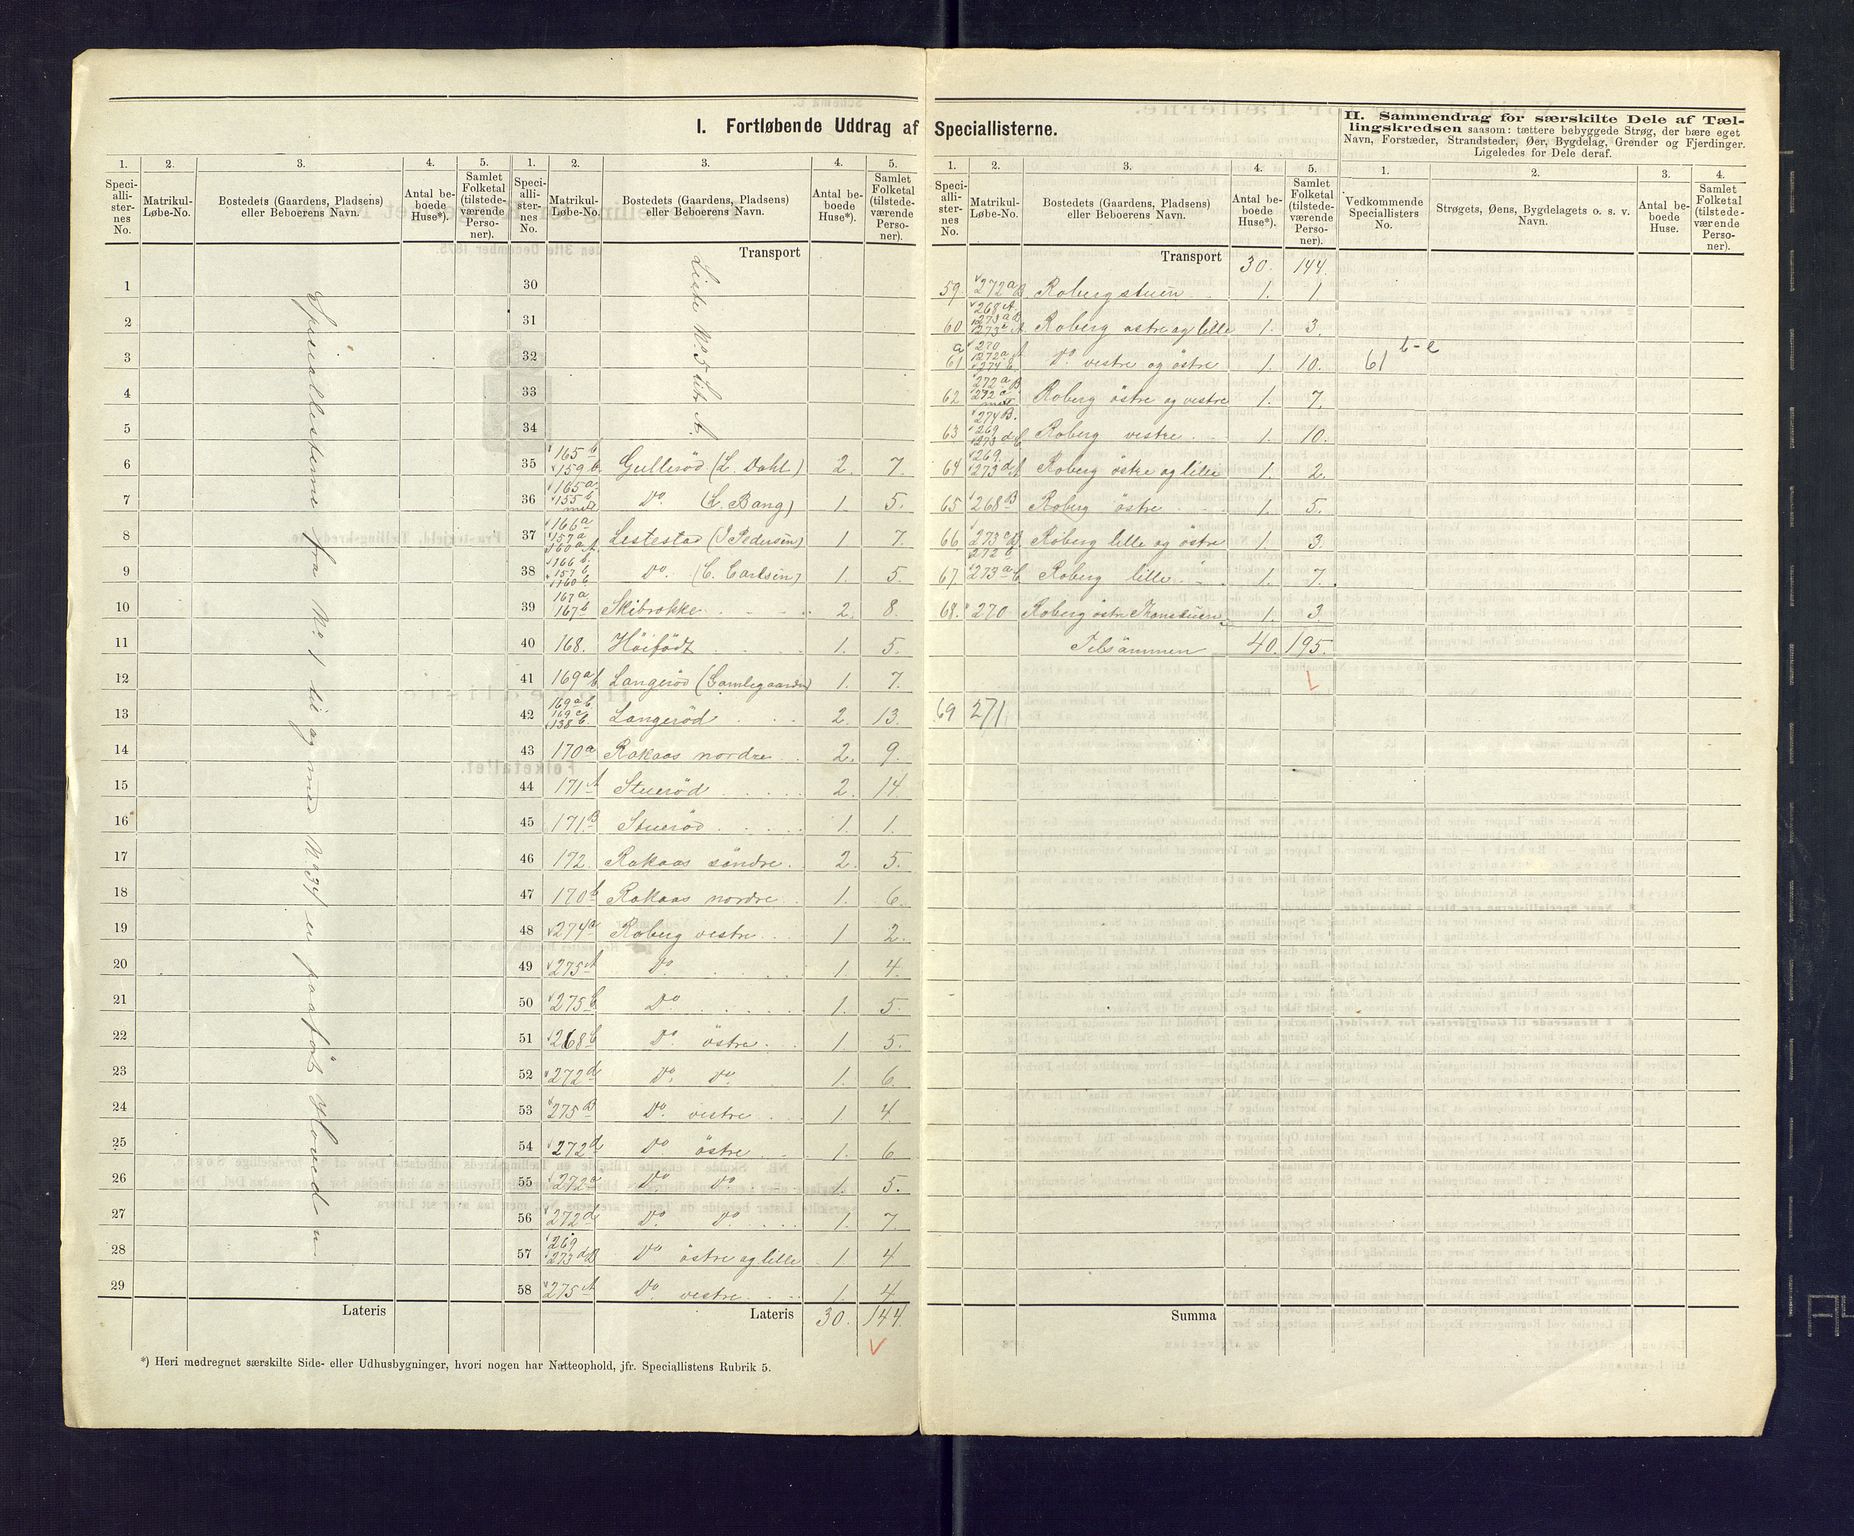 I. Fortløbende Uddrag af Speciallisterne.
II. Sammendrag for særskilte Dele af Tællingskredsen saasom: tættere bebyggede Strøg, der bære eget
Navn, Forstæder, Strandsteder, Øer, Bygdelag, Grender og Fjerdinger.
Ligeledes for Dele deraf.
1. 2. 3. 4. 5. 1. 2. 3. 4. 5.
Speciallisternes No. Matrikul-Løbe-No. Bostedets (Gaardens, Pladsens) eller Beboerens Navn. Antal beboede Huse*). Samlet Folketal (tilstedeværende Personer).
Speciallisternes No. Matrikul-Løbe-No. Bostedets (Gaardens, Pladsens) eller Beboerens Navn. Antal beboede Huse*). Samlet Folketal (tilstedeværende Personer).
Transport
1
2
3
4
5
6
7
8
9
10
11
12
13
14
15
16
17
18
19
20
21
22
23
24
25
26
27
28
29
Lateris
Speciallisterne fra No. 1 til og med No. 34 er paaført Hoved
Liste No. 5 Litr. A.
30
31
32
33
34
35 165b 159b Gulleröd (L. Dahl) 2. 7.
36 165a 155b med Do. (L. Bang) 1. 5.
37 166a 157a 160a A Lestestad (J Pedersen) 1 7.
38 166b 157b 160b Do. (C. Carlsen) 1. 5.
39 167a 167b Skibrokke 2. 8.
40 168. Höifödt 1. 5.
41 169ab Langeröd (Gamlegaarden) 1. 7.
42 169ab 169c 138b Langeröd 2. 13.
43 170a Rakaas nordre 2. 9.
44 171A Stueröd 2. 14.
45 171B Stueröd 1. 1.
46 172. Rakaas söndre 2. 5.
47 170b Rakaas nordre 1. 6.
48 274a Roberg vestre 1 2.
49 275A Do. 1. 4.
50 275b Do. 1. 5.
51 268b Do. östre 1. 5.
52 272d Do. Do. 1. 6
53 275B Do. vestre 1. 4.
54 272d Do östre 1. 6
55 272a Do. Do. 1. 5.
56 272d Do. Do. 1. 7
57 269 273dB Do östre og lille 1 4
58 275A Do. vestre 1. 4
Lateris 30. 144.
*) Heri medregnet særskilte Side- eller Udhusbygninger, hvori nogen har Natteophold, jfr. Speciallistens Rubrik 5.
1. 2. 3. 4. 5. 1. 2. 3. 4.
Speciallisternes No. Matrikul-Løbe-No. Bostedets (Gaardens, Pladsens) eller Beboerens Navn. Antal beboede Huse*). Samlet Folketal (tilstedeværende Personer).
Vedkommende Speciallisters No. Strøgets, Øens, Bygdelagets o. s. v. Navn. Antal beboede Huse. Samlet Folketal (tilstedeværende Personer).
Transport 30. 144.
59. 272aB Robergstuen 1. 1.
60 268A 273aB 273cA Roberg östre og lille 1. 3.
61a 270 272aA 274b Do. vestre og östre 1. 10. 61 b-e
62 272aB 272c med Roberg östre og vestre 1. 7.
63 274B. 269 273dC Roberg vestre 1. 10.
64 269. 273dA Roberg östre og lille 1. 2.
65 268B Roberg östre 1. 5.
66 273aB 272b Roberg lille og östre 1. 3.
67 273aC Roberg lille 1. 7.
68. 270 Roberg östre Thonstuen 1. 3
Tilsammen 40. 195.
69 271
Summa